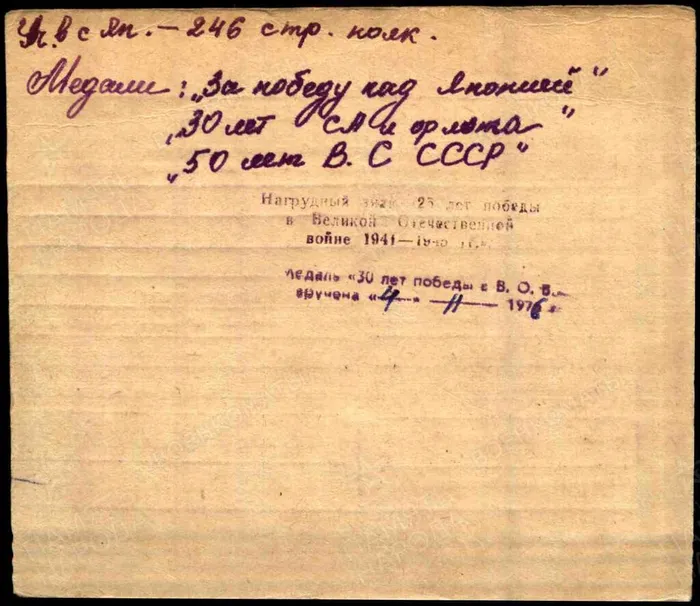 Уч. в с яп. – 246 стр. полк.
Медали: „За победу над Японией"
„30 лет СА и флота"
„50 лет В. С СССР"
Нагрудный знак «25 лет победы
в Великой Отечественной
войне 1941—1945 гг.»
Медаль «30 лет победы в В. О. В.
вручена «4» 11 1976 г.